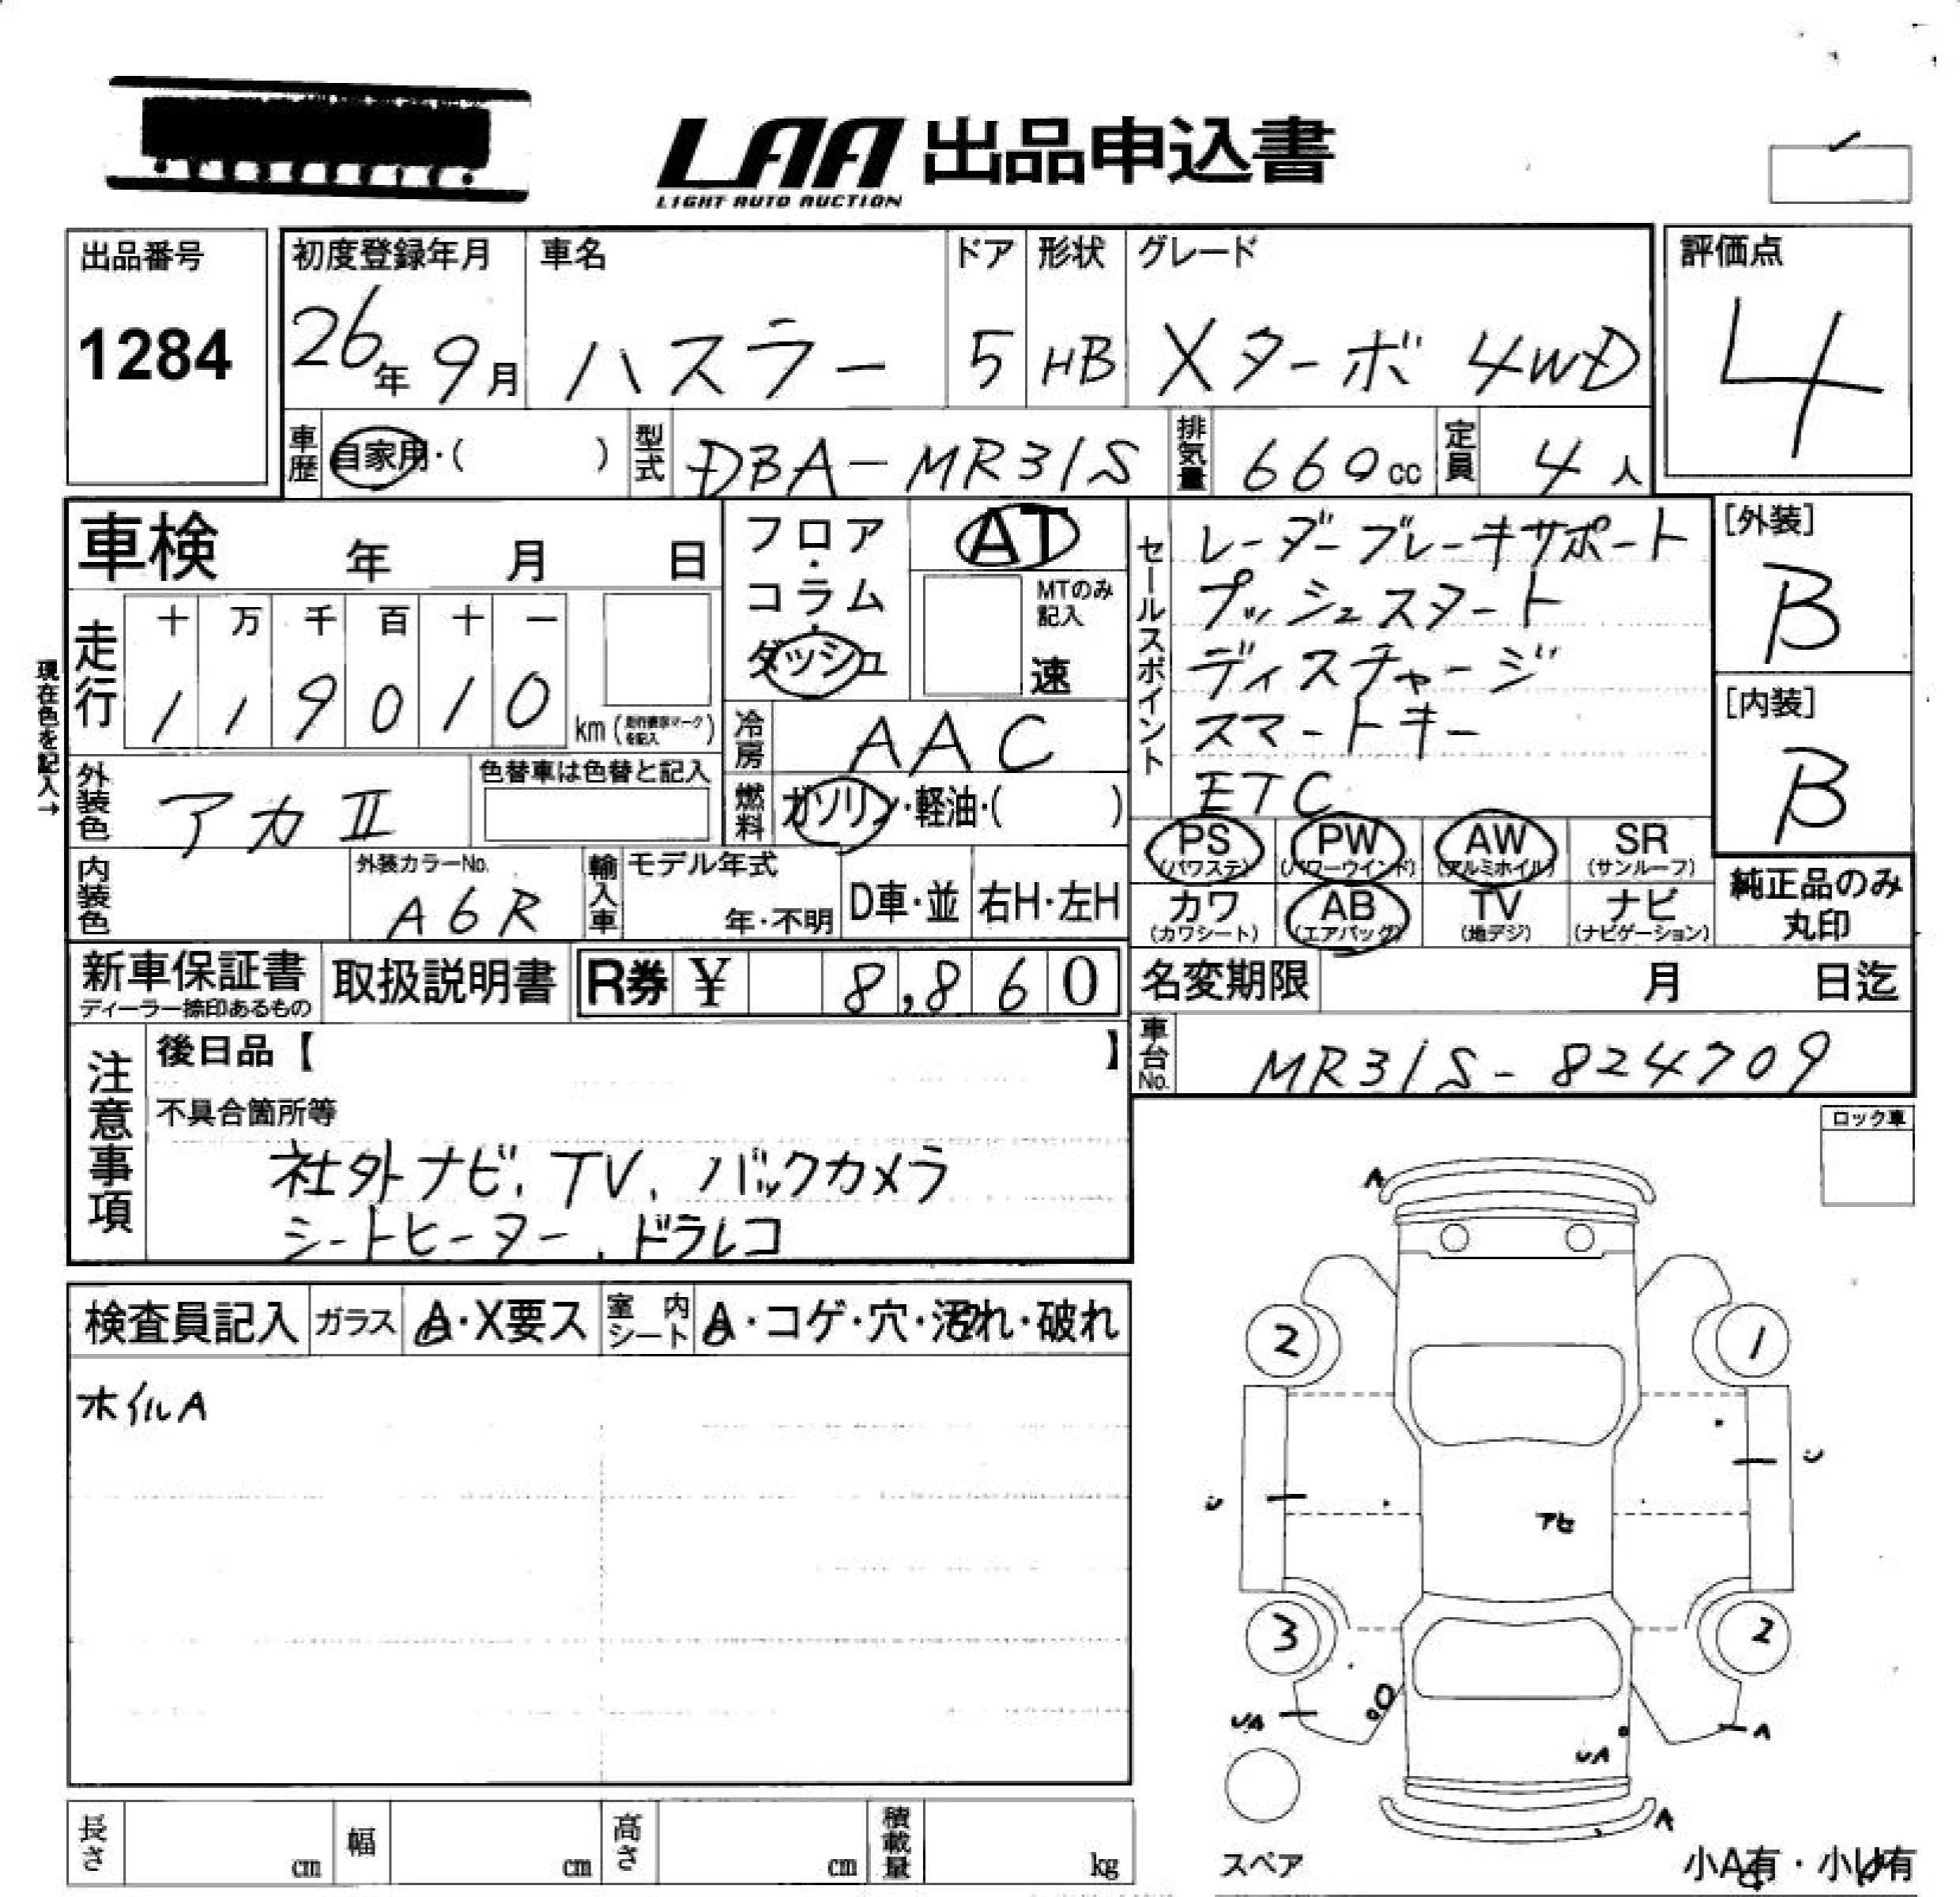 LAA 出品申込書
LIGHT AUTO AUCTION
出品番号
1284
初度登録年月
26年 9月
車名
ハスラー
ドア
5
形状
HB
グレード
Xターボ 4WD
評価点
4
車歴
自家用・( )
型式
DBA-MR31S
排気量
660cc
定員
4人
車検 年 月 日
フロア・コラム・ダッシュ
AT
MTのみ記入
速
セールスポイント
レーダーブレーキサポート
プッシュスタート
ディスチャージ
スマートキー
ETC
[外装]
B
[内装]
B
現在色を記入→
走行
十 万 千 百 十 一
1 1 9 0 1 0
km
冷房
AAC
外装色
アカⅡ
色替車は色替と記入
燃料
ガソリン・軽油・( )
PS
(パワステ)
PW
(パワーウインド)
AW
(アルミホイル)
SR
(サンルーフ)
内装色
外装カラーNo.
A6R
輸入車
モデル年式
年・不明
D車・並
右H・左H
カワ
(カワシート)
AB
(エアバッグ)
TV
(地デジ)
ナビ
(ナビゲーション)
純正品のみ
丸印
新車保証書
ディーラー捺印あるもの
取扱説明書
R券 ¥ 8,860
名変期限 月 日迄
車台No.
MR31S-824709
注意事項
後日品【 】
不具合箇所等
社外ナビ、TV、バックカメラ
シートヒーター、ドラレコ
ロック車
検査員記入
ガラス
A・X要ス
室内シート
A・コゲ・穴・汚れ・破れ
ホイルA
A
2
1
U
U
アセ
3
2
UA
A
UA
A
スペア
小A有・小U有
長さ cm
幅 cm
高さ cm
積載量 kg